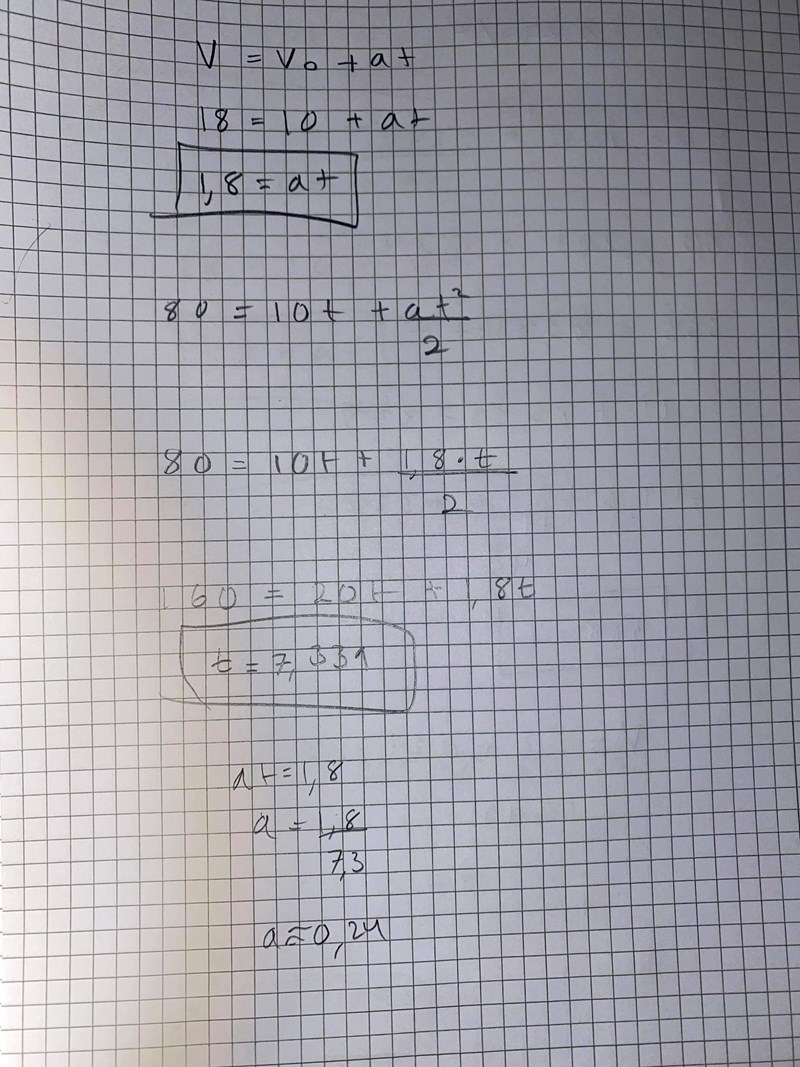 V = V₀ + at
18 = 10 + at
1,8 = at
80 = 10t + at²/2
80 = 10t + 1,8·t/2
160 = 20t + 1,8t
t = 7,339
at = 1,8
a = 1,8/7,3
a = 0,24